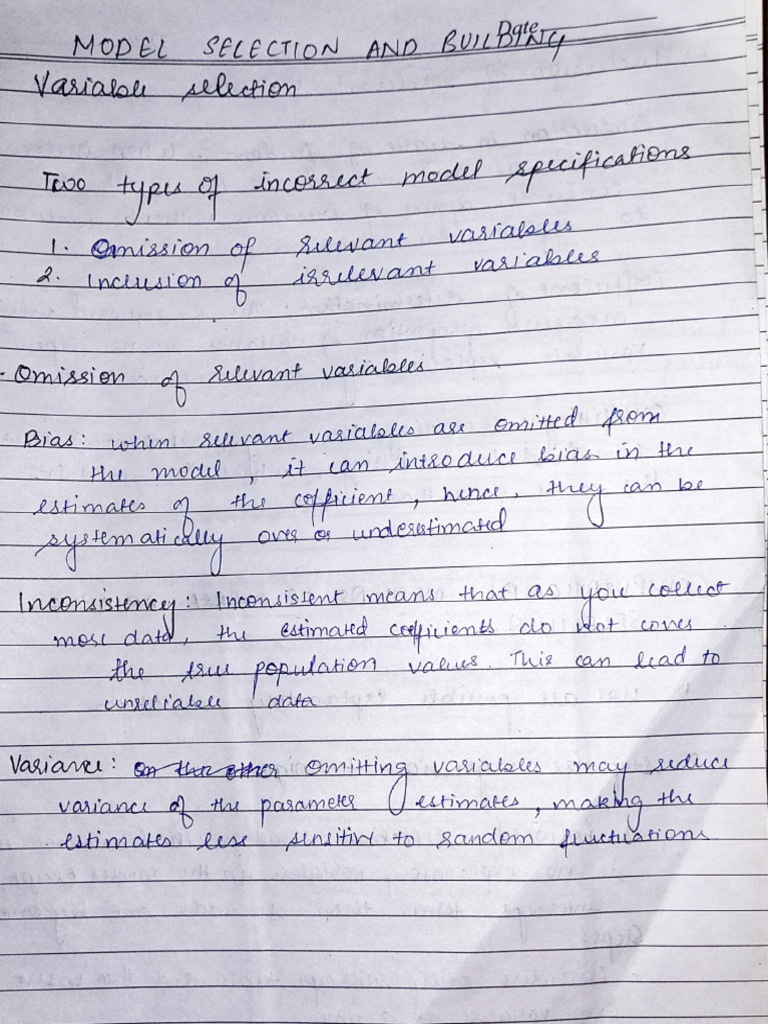 Date
MODEL SELECTION AND BUILDING
Variable selection
Two types of incorrect model specifications
1. Omission of relevant variables
2. Inclusion of irrelevant variables
· Omission of relevant variables
Bias: when relevant variables are omitted from
the model, it can introduce bias in the
estimates of the cofficient, hence, they can be
systematically over or underestimated
Inconsistency: Inconsistent means that as you collect
more data, the estimated coefficients do not cover
the true population values. This can lead to
unreliable data
Variance: On the other omitting variables may reduce
variance of the parameter estimates, making the
estimates less sensitive to random fluctuations